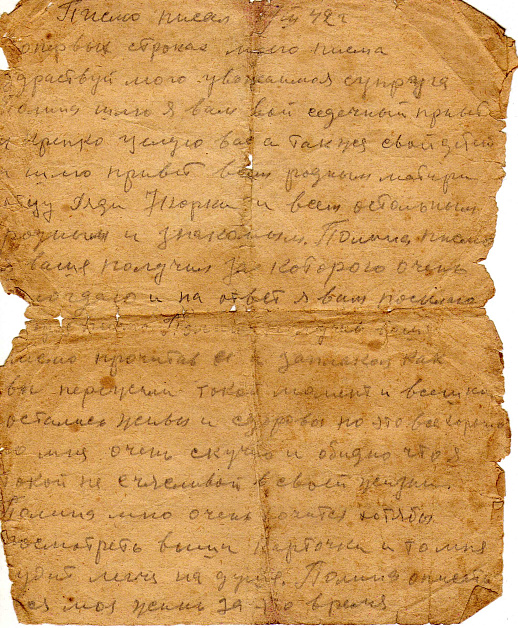 Писмо писал III 42 г
первых строках моего писма
здраствуй моя уважаимая супруга
Полина шлю я вам свой седечный привет
и крепко целую вас а также своих детей
и шлю привет всем родным матери
отцу дяди Жорки и всем остальным
родным и знакомым. Полина писмо
я ваше получил за которого очень
и на ответ я вам посылаю
писмо прочитав ея и заплакал как
вы пережили такой момент и все
остались живы и здоровы но это все хорошо
но мне очень скучно и обидно что я
такой не счасливый в своей жизни.
Полина мне очень хочится хотябы
посмотреть ваши карточки и то мне
будит легче на душе. Полина описать
вся моя жизнь за это время